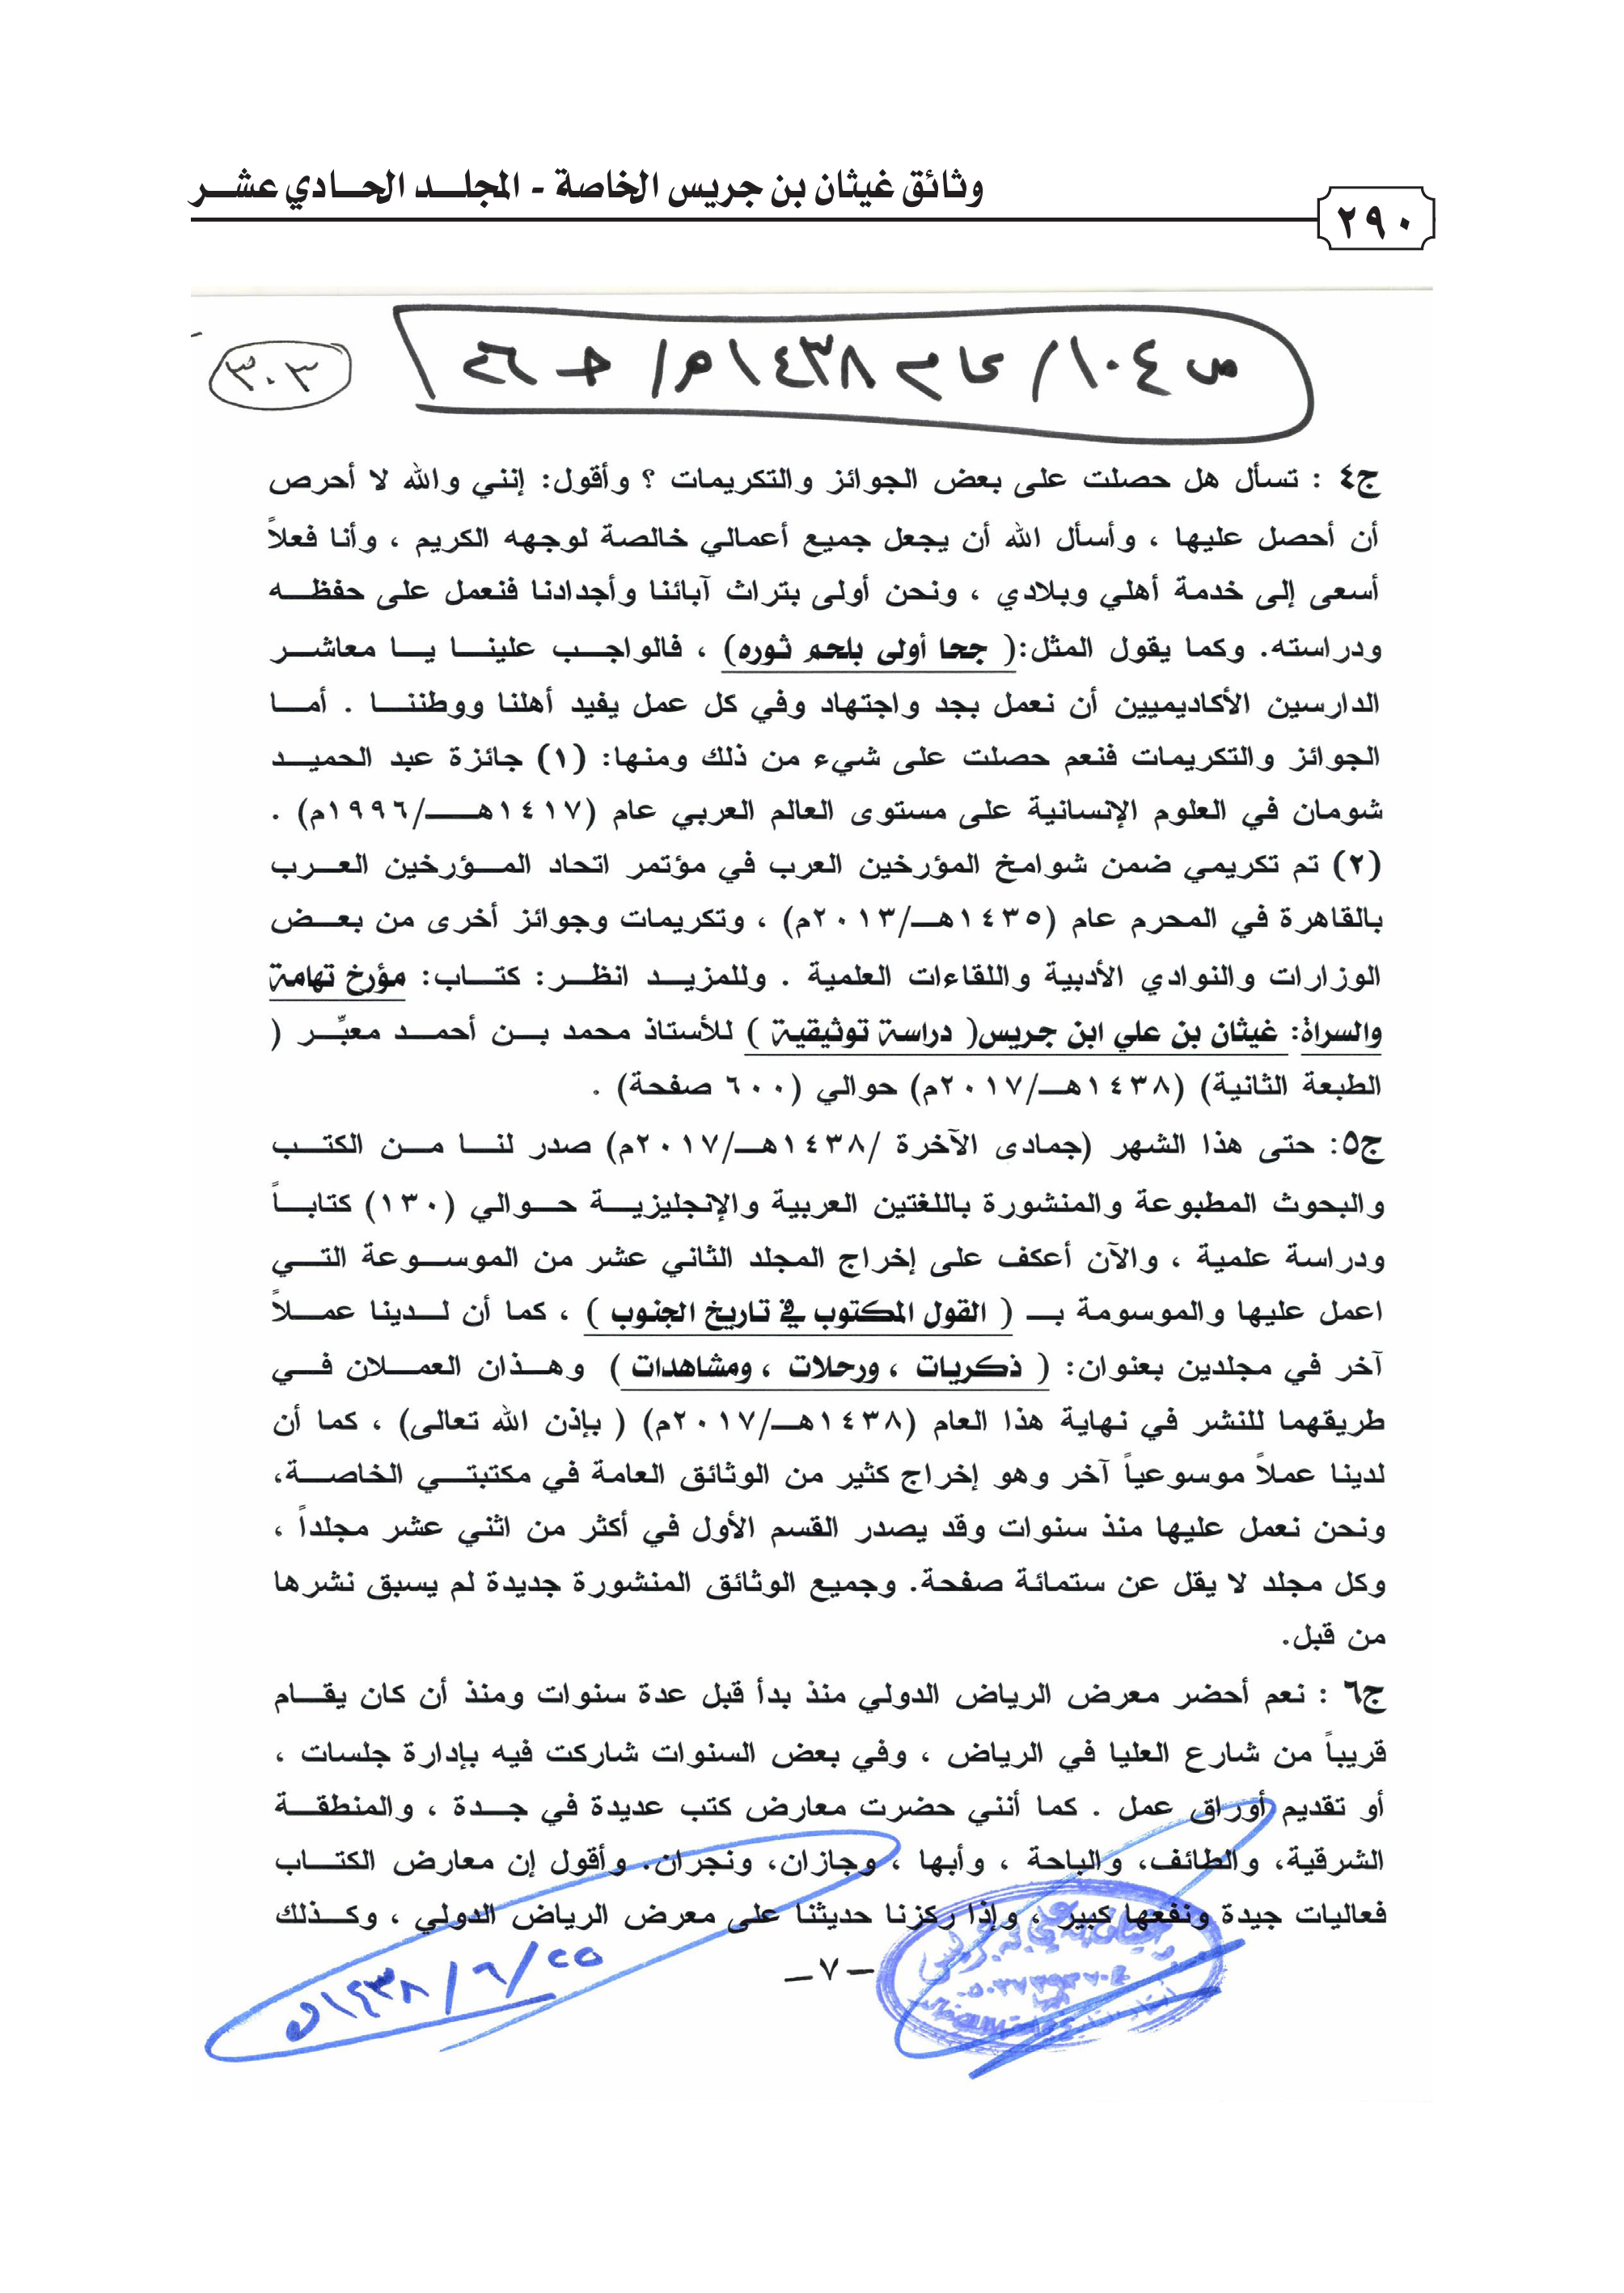 وثائق غيثان بن جريس الخاصة - المجلـد الحـادي عشـر
٢٩٠
ص ١٠٤/ عام ١٤٣٨هـ/ جـ ٢٦
٣٠٣
ج٤ : تسأل هل حصلت على بعض الجوائز والتكريمات ؟ وأقول: إنني والله لا أحرص
أن أحصل عليها ، وأسأل الله أن يجعل جميع أعمالي خالصة لوجهه الكريم ، وأنا فعلاً
أسعى إلى خدمة أهلي وبلادي ، ونحن أولى بتراث آبائنا وأجدادنا فنعمل على حفظـه
ودراسته. وكما يقول المثل:( جحا أولى بلحم ثوره) ، فالواجـب علينـا يـا معاشـر
الدارسين الأكاديميين أن نعمل بجد واجتهاد وفي كل عمل يفيد أهلنا ووطننـا . أمـا
الجوائز والتكريمات فنعم حصلت على شيء من ذلك ومنها: (١) جائزة عبد الحميـد
شومان في العلوم الإنسانية على مستوى العالم العربي عام (١٤١٧هـ/١٩٩٦م) .
(٢) تم تكريمي ضمن شوامخ المؤرخين العرب في مؤتمر اتحاد المـؤرخين العـرب
بالقاهرة في المحرم عام (١٤٣٥هـ/٢٠١٣م) ، وتكريمات وجوائز أخرى من بعـض
الوزارات والنوادي الأدبية واللقاءات العلمية . وللمزيـد انظـر: كتـاب: مؤرخ تهامة
والسراة: غيثان بن علي ابن جريس( دراسة توثيقية ) للأستاذ محمد بـن أحمـد معبِّـر (
الطبعة الثانية) (١٤٣٨هـ/٢٠١٧م) حوالي (٦٠٠ صفحة) .
ج٥: حتى هذا الشهر (جمادى الآخرة /١٤٣٨هـ/٢٠١٧م) صدر لنـا مـن الكتـب
والبحوث المطبوعة والمنشورة باللغتين العربية والإنجليزيـة حـوالي (١٣٠) كتابـاً
ودراسة علمية ، والآن أعكف على إخراج المجلد الثاني عشر من الموسـوعة التـي
اعمل عليها والموسومة بـ ( القول المكتوب في تاريخ الجنوب ) ، كما أن لـدينا عمـلاً
آخر في مجلدين بعنوان: ( ذكريات ، ورحلات ، ومشاهدات ) وهـذان العمـلان فـي
طريقهما للنشر في نهاية هذا العام (١٤٣٨هـ/٢٠١٧م) ( بإذن الله تعالى) ، كما أن
لدينا عملاً موسوعياً آخر وهو إخراج كثير من الوثائق العامة في مكتبتـي الخاصـة،
ونحن نعمل عليها منذ سنوات وقد يصدر القسم الأول في أكثر من اثني عشر مجلداً ،
وكل مجلد لا يقل عن ستمائة صفحة. وجميع الوثائق المنشورة جديدة لم يسبق نشرها
من قبل.
ج٦ : نعم أحضر معرض الرياض الدولي منذ بدأ قبل عدة سنوات ومنذ أن كان يقـام
قريباً من شارع العليا في الرياض ، وفي بعض السنوات شاركت فيه بإدارة جلسات ،
أو تقديم أوراق عمل . كما أنني حضرت معارض كتب عديدة في جـدة ، والمنطقـة
الشرقية، والطائف، والباحة ، وأبها ، وجازان، ونجران. وأقول إن معارض الكتـاب
فعاليات جيدة ونفعها كبير ، وإذا ركزنا حديثنا على معرض الرياض الدولي ، وكـذلك
–٧–
٢٥/٦/١٤٣٨هـ